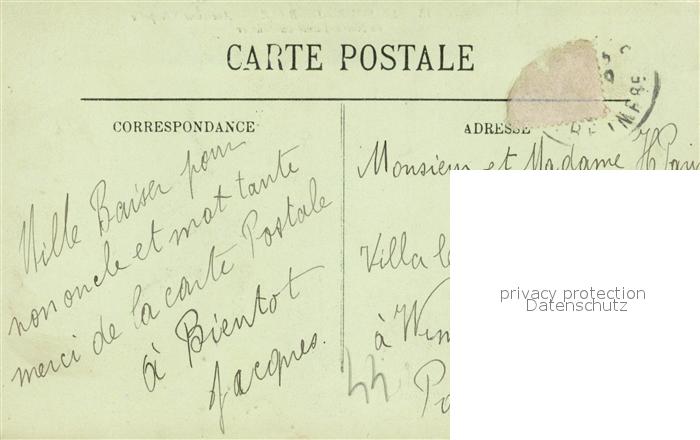 CARTE POSTALE
CORRESPONDANCE
ADRESSE
Mille Baiser pour
mon oncle et mat tante
merci de la carte Postale
à Bientot
Jacques.
Monsieur et Madame H
Villa
à
44
privacy protection
Datenschutz